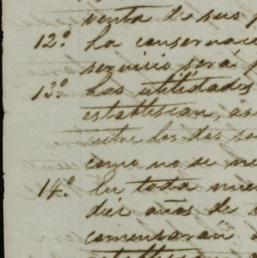 venta de sus
12º La conservac
servicio será p
13º Las utilidades
establescan, as
entre los dos so
como no se me
14º En toda nue
diez años de
comensaran
establescan